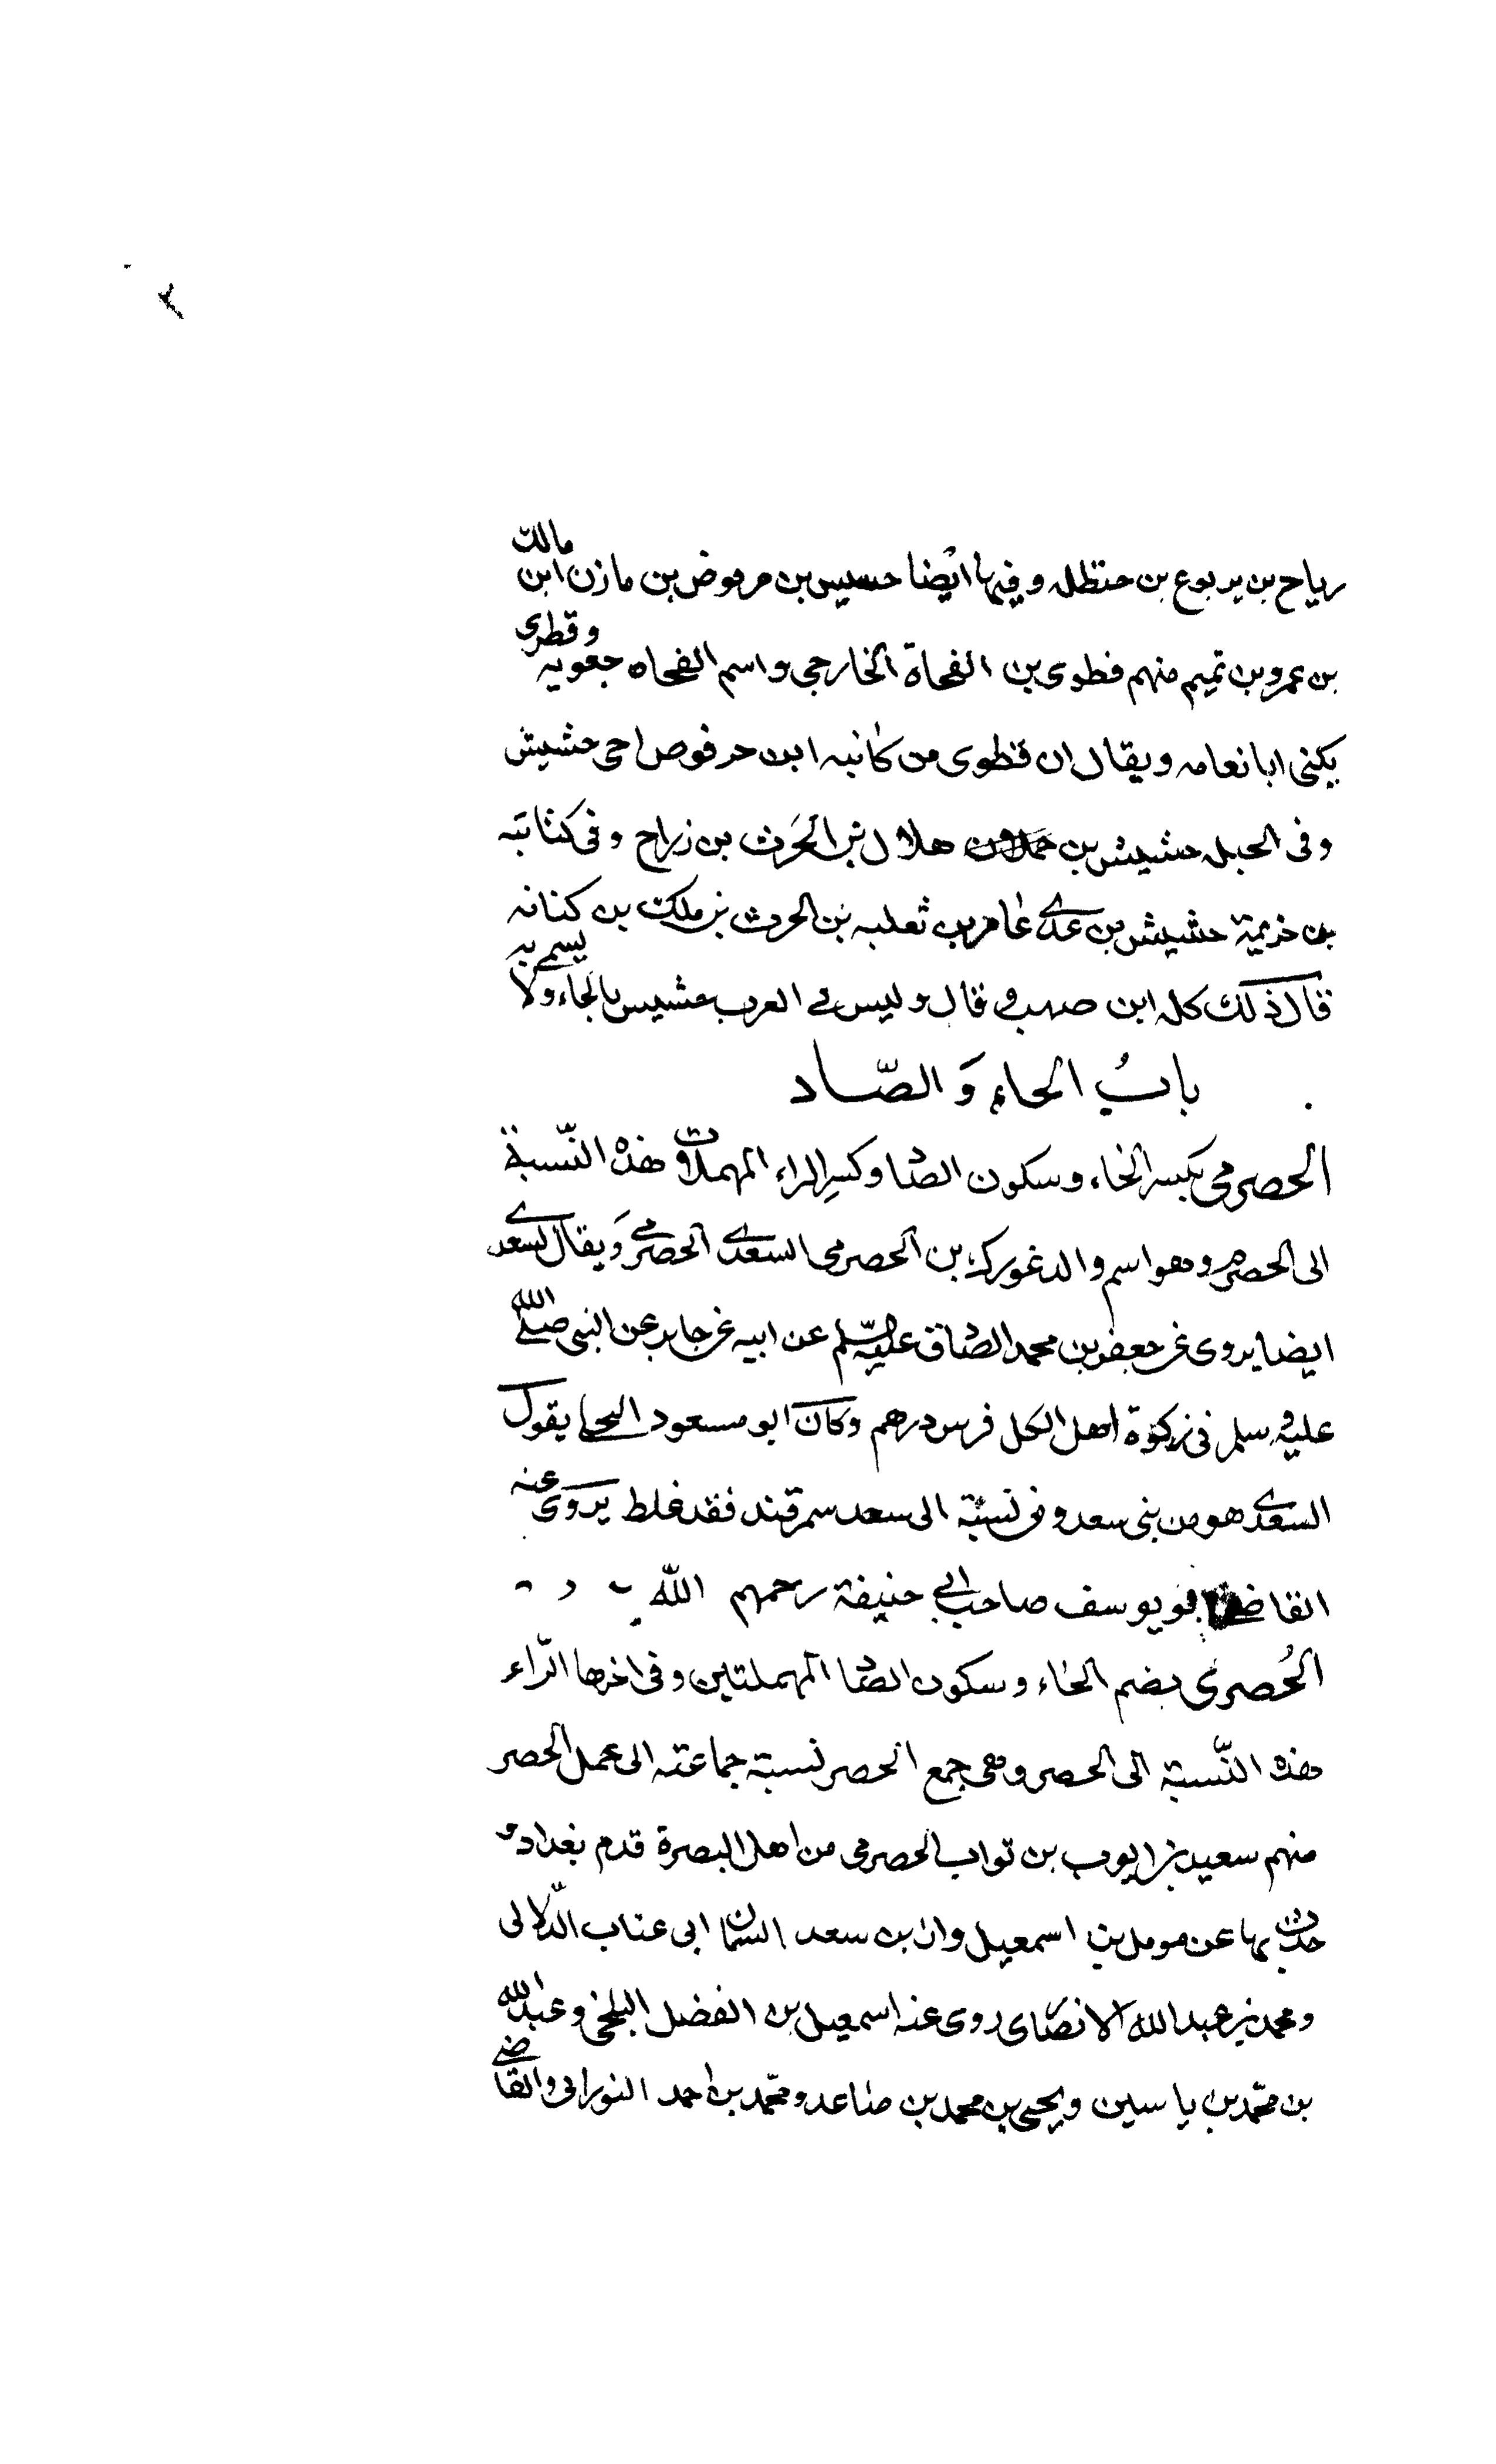 رياح بن يربوع بن حنظله وفيها ايضا حسيس بن مرموض بن مازن ابن مالك
بن عمرو بن تميم منهم فطوى بن الفحاة الخارجي واسم الفحاه جعويه وقطرى
يكنى ابا نعامه ويقال ان قطوى من كانبه ابن حرفوص احى حشيش
وفى الحبله حشيش بن هلال بن الحرث بن زراح وفى كنانة
بن خزيمة حشيش بن عدى عامر بن ثعلبه بن الحرث بن ملك بن كنانه
قال ذلك كله ابن قال وليس فى العرب حشيس بالحاء ولا يسمى به
باب الحاء والصاد
الحصرمى بكسر الحاء وسكون الصاد وكسر الراء المهملات هذه النسبة
الى الحصرم وهو اسم والد غورك بن الحصرمى السعدى الحصرمى ويقال لسعدى
ايضا يروى عن جعفر بن محمد الصادق عليه السلم عن ابيه عن جابر عن النبى صلى الله
عليه وسلم فى زكوة اهل الكل فرس درهم وكان ابو مسعود البجلى يقول
السعدى هو من بنى سعد ومن نسبة الى سعد سمرقند فقد غلط يروى عنه
القاضى ابو يوسف صاحب ابى حنيفة رحمهم الله
الحُصرى بضم الحاء وسكون الصاد المهملتين وفى اخرها الراء
هذه النسبة الى الحصر وهى جمع الحصر نسبة جماعته الى عمل الحصر
منهم سعيد بن ايوب بن ثواب الحصرمى من اهل البصرة قدم بغداد و
حدث بها عن مومل بن اسمعيل وازن بن سعد السمان ابى عتاب الدلالى
ومحمد بن عبد الله الانصارى روى عنه اسمعيل بن الفضل البلخى وعبد الله
بن محمد بن ياسين ويحيى بن محمد بن صاعد ومحمد بن احمد النورانى والقاضى